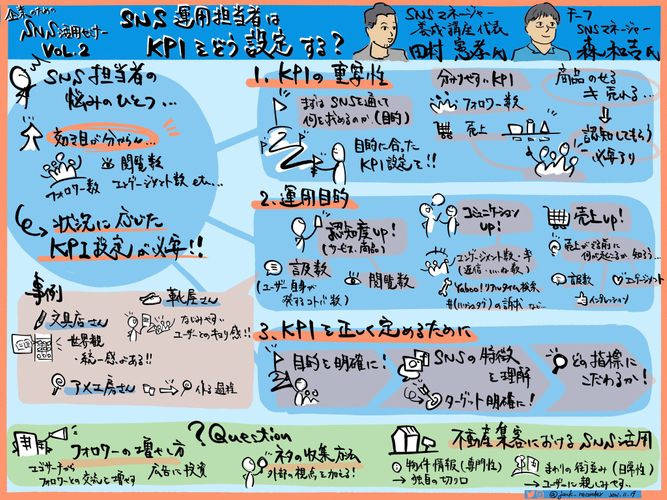 企業のための
SNS活用セミナー
VOL.2
SNS運用担当者は
KPIをどう設定する?
SNSマネージャー
養成講座代表
田村憲孝氏
チーフ
SNSマネージャー
森和吉氏
SNS担当者の
悩みのひとつ…
効果が分からん…
フォロワー数
閲覧数
エンゲージメント数 etc…
状況に応じた
KPI設定が必要!!
1. KPIの重要性
まずはSNSを通して
何を求めるのか(目的)
目的に合った
KPI設定を!!
分かりやすいKPI
フォロワー数
売上
商品のせる
≠売れる…
認知してもらう
必要あり
2. 運用目的
認知度up!
(サービス、商品)
言及数
(ユーザー自身が
発するコトバ数)
閲覧数
コミュニケーション
up!
エンゲージメント数・率
(返信・いいね数)
Yahoo!リアルタイム検索
#(ハッシュタグ)の訴求 など…
売上up!
売上が立つ前に
何が起こるか知ろう…
言及数
エンゲージメント
インプレッション
事例
文具店さん
世界観
・統一感がある!!
靴屋さん
なじみやすい
ユーザーとのキョリ感!!
アメ工房さん
作る過程
3. KPIを正しく定めるために
目的を明確に!
SNSの特徴
を理解
→ターゲット明確に!
どの指標に
こだわるか!
?Question
フォロワーの増やし方
エンゲージから
フォロワーとの交流を増やす
広告に投資
ネタの収集方法
外部の視点を加える!
不動産集客におけるSNS活用
物件情報(専門性)
→独自の切り口
まわりの街並み(日常性)
→ユーザーに親しみやすい